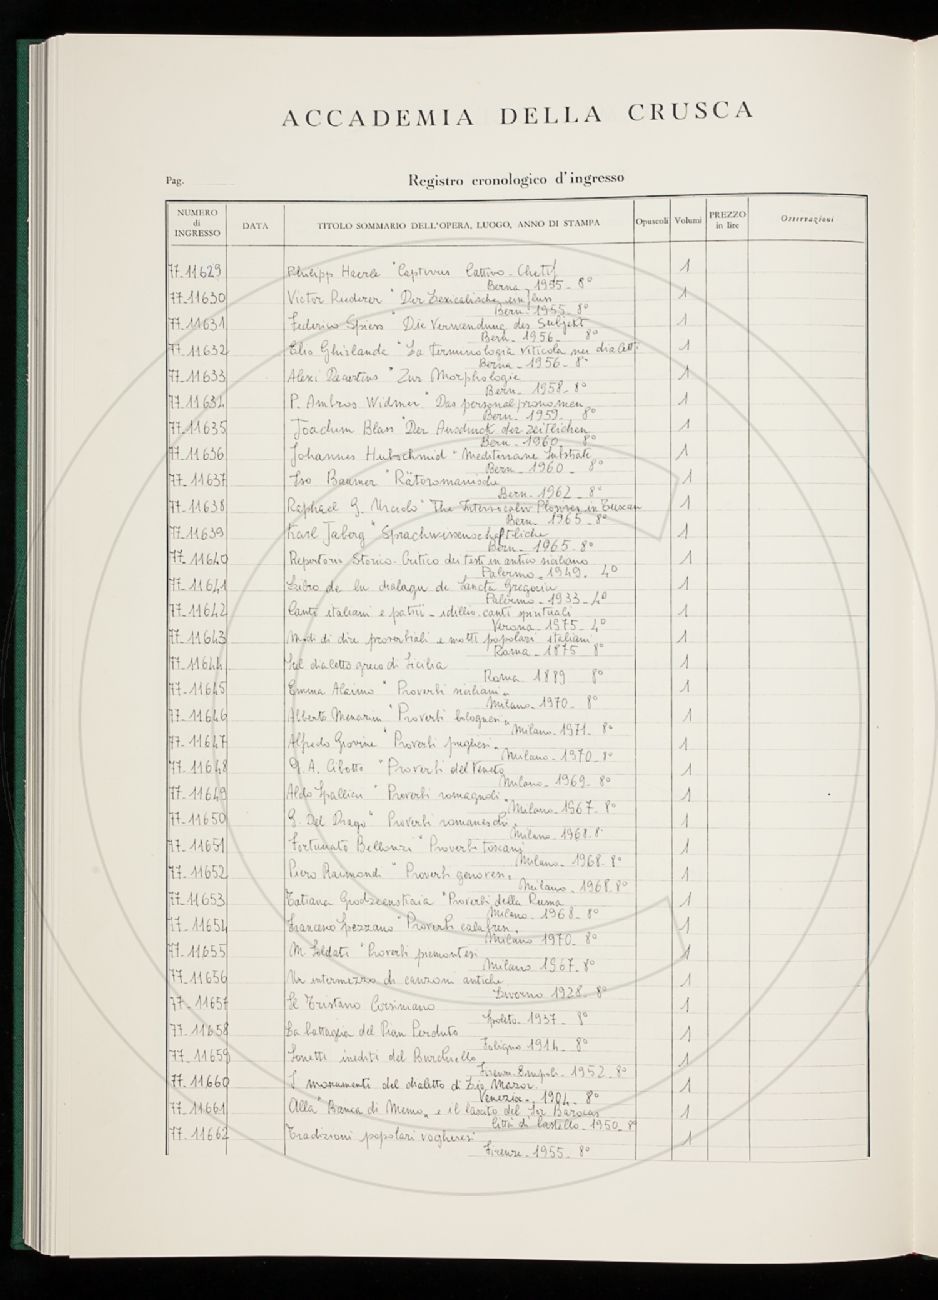 ACCADEMIA DELLA CRUSCA
Pag.
Registro cronologico d'ingresso
NUMERO di INGRESSO DATA TITOLO SOMMARIO DELL'OPERA, LUOGO, ANNO DI STAMPA Opuscoli Volumi PREZZO in lire Osservazioni
77-11629 Philipp Haerle "Captivus Cattivo - Chétif 1
Berna 1955 - 8°
77-11630 Victor Ruederer "Der 1
Bern. 1955 - 8°
77-11631 Federico Spiess "Die Verwendung des Subjekt 1
Bern. 1956 - 8°
77-11632 Elio Ghirlanda "La terminologia viticola nei dialett. 1
Berna - 1956 - 8°
77-11633 Alexi Decurtins "Zur Morphologie 1
Bern - 1958 - 8°
77-11634 P. Ambros Widmer "Das personalpronomen 1
Bern - 1959 - 8°
77-11635 Joachim Blass "Der Ausdruck der zeitlichen 1
Bern - 1960 - 8°
77-11636 Johannes Hubschmid "Mediterrane Substrate 1
Bern - 1960 - 8°
77-11637 Iso Baumer "Rätoromanische 1
Bern - 1962 - 8°
77-11638 Raphael G. Urciolo "The Intervocalic Plosives in Tuscan 1
Bern - 1965 - 8°
77-11639 Karl Jaberg "Sprachwissenschaftliche 1
Bern - 1965 - 8°
77-11640 Repertorio Storico-Critico dei testi in antico siciliano 1
Palermo - 1949 - 4°
77-11641 Libro de lu dialagu de Sanctu Gregoriu 1
Palermo - 1933 - 4°
77-11642 Canti italiani e patrii - idillio, canti spirituali 1
Verona - 1975 - 4°
77-11643 Modi di dire proverbiali e motti popolari italiani 1
Roma - 1875 8°
77-11644 Sul dialetto greco di Sicilia 1
Roma 1889 8°
77-11645 Emma Alaimo "Proverbi siciliani" 1
Milano - 1970 - 8°
77-11646 Alberto Menarini "Proverbi bolognesi" 1
Milano - 1971 - 8°
77-11647 Alfredo Giovine "Proverbi pugliesi" 1
Milano - 1970 - 8°
77-11648 G. A. Cibotto "Proverbi del Veneto 1
Milano - 1969 - 8°
77-11649 Aldo Spallicci "Proverbi romagnoli" 1
Milano - 1967 - 8°
77-11650 G. Del Drago "Proverbi romaneschi" 1
Milano - 1968 - 8°
77-11651 Fortunato Bellonzi "Proverbi toscani" 1
Milano - 1968 - 8°
77-11652 Piero Raimondi "Proverbi genovesi" 1
Milano - 1968 - 8°
77-11653 Tatiana "Proverbi della Russia 1
Milano - 1968 - 8°
77-11654 Francesco Spezzano "Proverbi calabresi" 1
Milano 1970 - 8°
77-11655 M. Soldati "Proverbi piemontesi 1
Milano 1967 - 8°
77-11656 Un intermezzo di canzoni antiche 1
Livorno - 1928 - 8°
77-11657 Il Tristano Corsiniano 1
Spoleto - 1937 - 8°
77-11658 La battaglia del Pian Perduto 1
Foligno 1914 - 8°
77-11659 Sonetti inediti del Burchiello 1
Firenze-Empoli - 1952 - 8°
77-11660 I monumenti del dialetto di Lio Mazor 1
Venezia - 1904 - 8°
77-11661 Alla "Banca di Memo" e il lascito del Sor Barocas 1
Città di Castello - 1950 - 8°
77-11662 Tradizioni popolari vogheresi 1
Firenze - 1955 - 8°